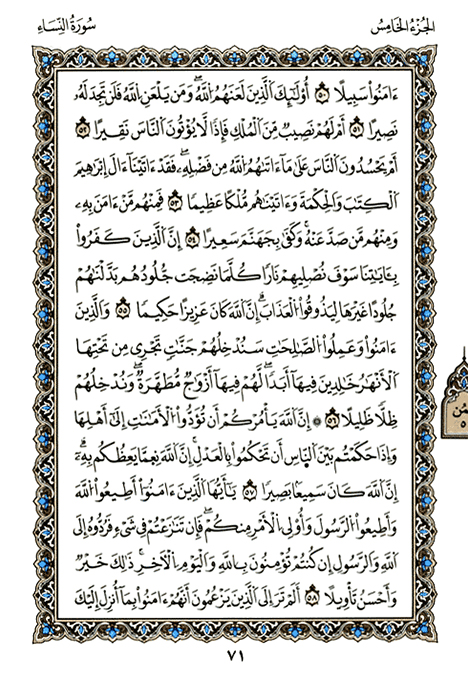 الجزء الخامس
سورة النساء
ءَامَنُوا۟ سَبِيلًا ٥٠ أُو۟لَٰٓئِكَ ٱلَّذِينَ لَعَنَهُمُ ٱللَّهُ وَمَن يَلْعَنِ ٱللَّهُ فَلَن تَجِدَ لَهُۥ
نَصِيرًا ٥١ أَمْ لَهُمْ نَصِيبٌ مِّنَ ٱلْمُلْكِ فَإِذًا لَّا يُؤْتُونَ ٱلنَّاسَ نَقِيرًا ٥٢
أَمْ يَحْسُدُونَ ٱلنَّاسَ عَلَىٰ مَآ ءَاتَىٰهُمُ ٱللَّهُ مِن فَضْلِهِۦ فَقَدْ ءَاتَيْنَآ ءَالَ إِبْرَٰهِيمَ
ٱلْكِتَٰبَ وَٱلْحِكْمَةَ وَءَاتَيْنَٰهُم مُّلْكًا عَظِيمًا ٥٣ فَمِنْهُم مَّنْ ءَامَنَ بِهِۦ
وَمِنْهُم مَّن صَدَّ عَنْهُ وَكَفَىٰ بِجَهَنَّمَ سَعِيرًا ٥٤ إِنَّ ٱلَّذِينَ كَفَرُوا۟
بِـَٔايَٰتِنَا سَوْفَ نُصْلِيهِمْ نَارًا كُلَّمَا نَضِجَتْ جُلُودُهُم بَدَّلْنَٰهُمْ
جُلُودًا غَيْرَهَا لِيَذُوقُوا۟ ٱلْعَذَابَ إِنَّ ٱللَّهَ كَانَ عَزِيزًا حَكِيمًا ٥٥ وَٱلَّذِينَ
ءَامَنُوا۟ وَعَمِلُوا۟ ٱلصَّٰلِحَٰتِ سَنُدْخِلُهُمْ جَنَّٰتٍ تَجْرِى مِن تَحْتِهَا
ٱلْأَنْهَٰرُ خَٰلِدِينَ فِيهَآ أَبَدًا لَّهُمْ فِيهَآ أَزْوَٰجٌ مُّطَهَّرَةٌ وَنُدْخِلُهُمْ
ظِلًّا ظَلِيلًا ٥٦ إِنَّ ٱللَّهَ يَأْمُرُكُمْ أَن تُؤَدُّوا۟ ٱلْأَمَٰنَٰتِ إِلَىٰٓ أَهْلِهَا
وَإِذَا حَكَمْتُم بَيْنَ ٱلنَّاسِ أَن تَحْكُمُوا۟ بِٱلْعَدْلِ إِنَّ ٱللَّهَ نِعِمَّا يَعِظُكُم بِهِۦٓ
إِنَّ ٱللَّهَ كَانَ سَمِيعًۢا بَصِيرًا ٥٧ يَٰٓأَيُّهَا ٱلَّذِينَ ءَامَنُوٓا۟ أَطِيعُوا۟ ٱللَّهَ
وَأَطِيعُوا۟ ٱلرَّسُولَ وَأُو۟لِى ٱلْأَمْرِ مِنكُمْ فَإِن تَنَٰزَعْتُمْ فِى شَىْءٍ فَرُدُّوهُ إِلَى
ٱللَّهِ وَٱلرَّسُولِ إِن كُنتُمْ تُؤْمِنُونَ بِٱللَّهِ وَٱلْيَوْمِ ٱلْأَخِرِ ذَٰلِكَ خَيْرٌ
وَأَحْسَنُ تَأْوِيلًا ٥٨ أَلَمْ تَرَ إِلَى ٱلَّذِينَ يَزْعُمُونَ أَنَّهُمْ ءَامَنُوا۟ بِمَآ أُنزِلَ إِلَيْكَ
٧١